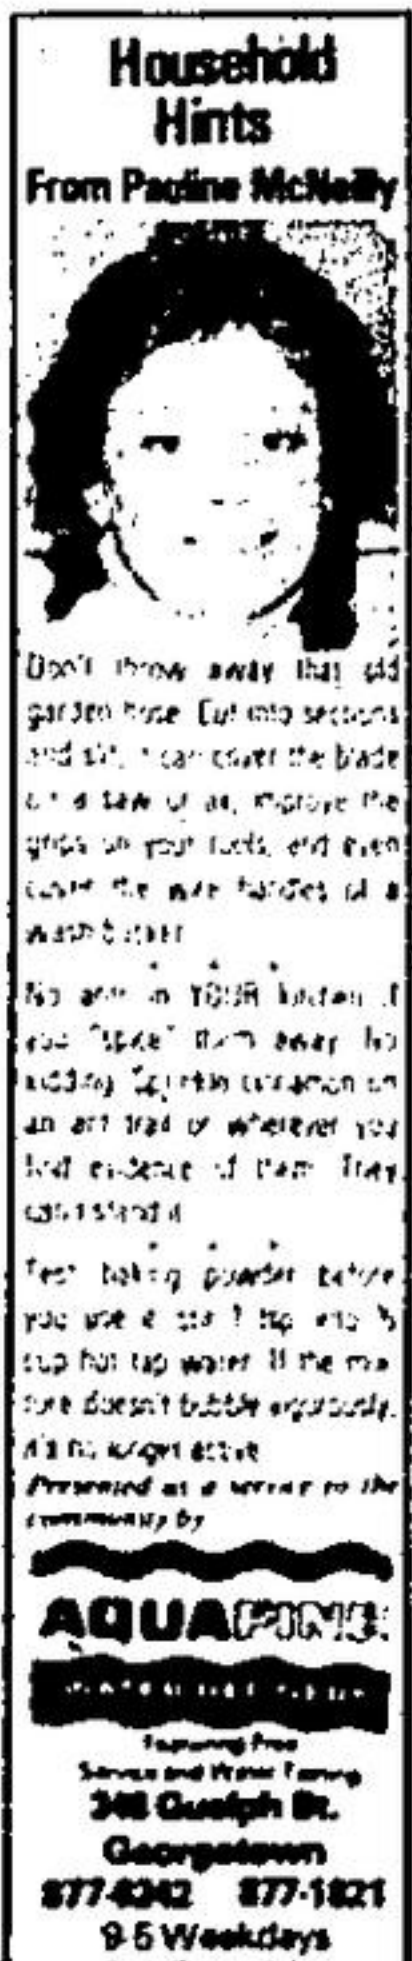 Household
Hints
From Pauline McNeilly
Don't throw away that old
garden hose. Cut into sections
and slit, it can cover the blade
of a saw or ax, improve the
grips on your tools, and even
cover the wire handles of a
wash bucket
* * *
No ants in YOUR kitchen if
you "spice" them away. No
kidding. Sprinkle cinnamon on
an ant trail or wherever you
find evidence of them. They
can't stand it
* * *
Test baking powder before
you use it: stir 1 tsp. into
cup hot tap water. If the mix-
ture doesn't bubble vigorously,
it's no longer active
Presented as a service to the
community by
AQUAPINE
Featuring Free
Service and Water Testing
Guelph St.
Georgetown
877-1821
9-5 Weekdays